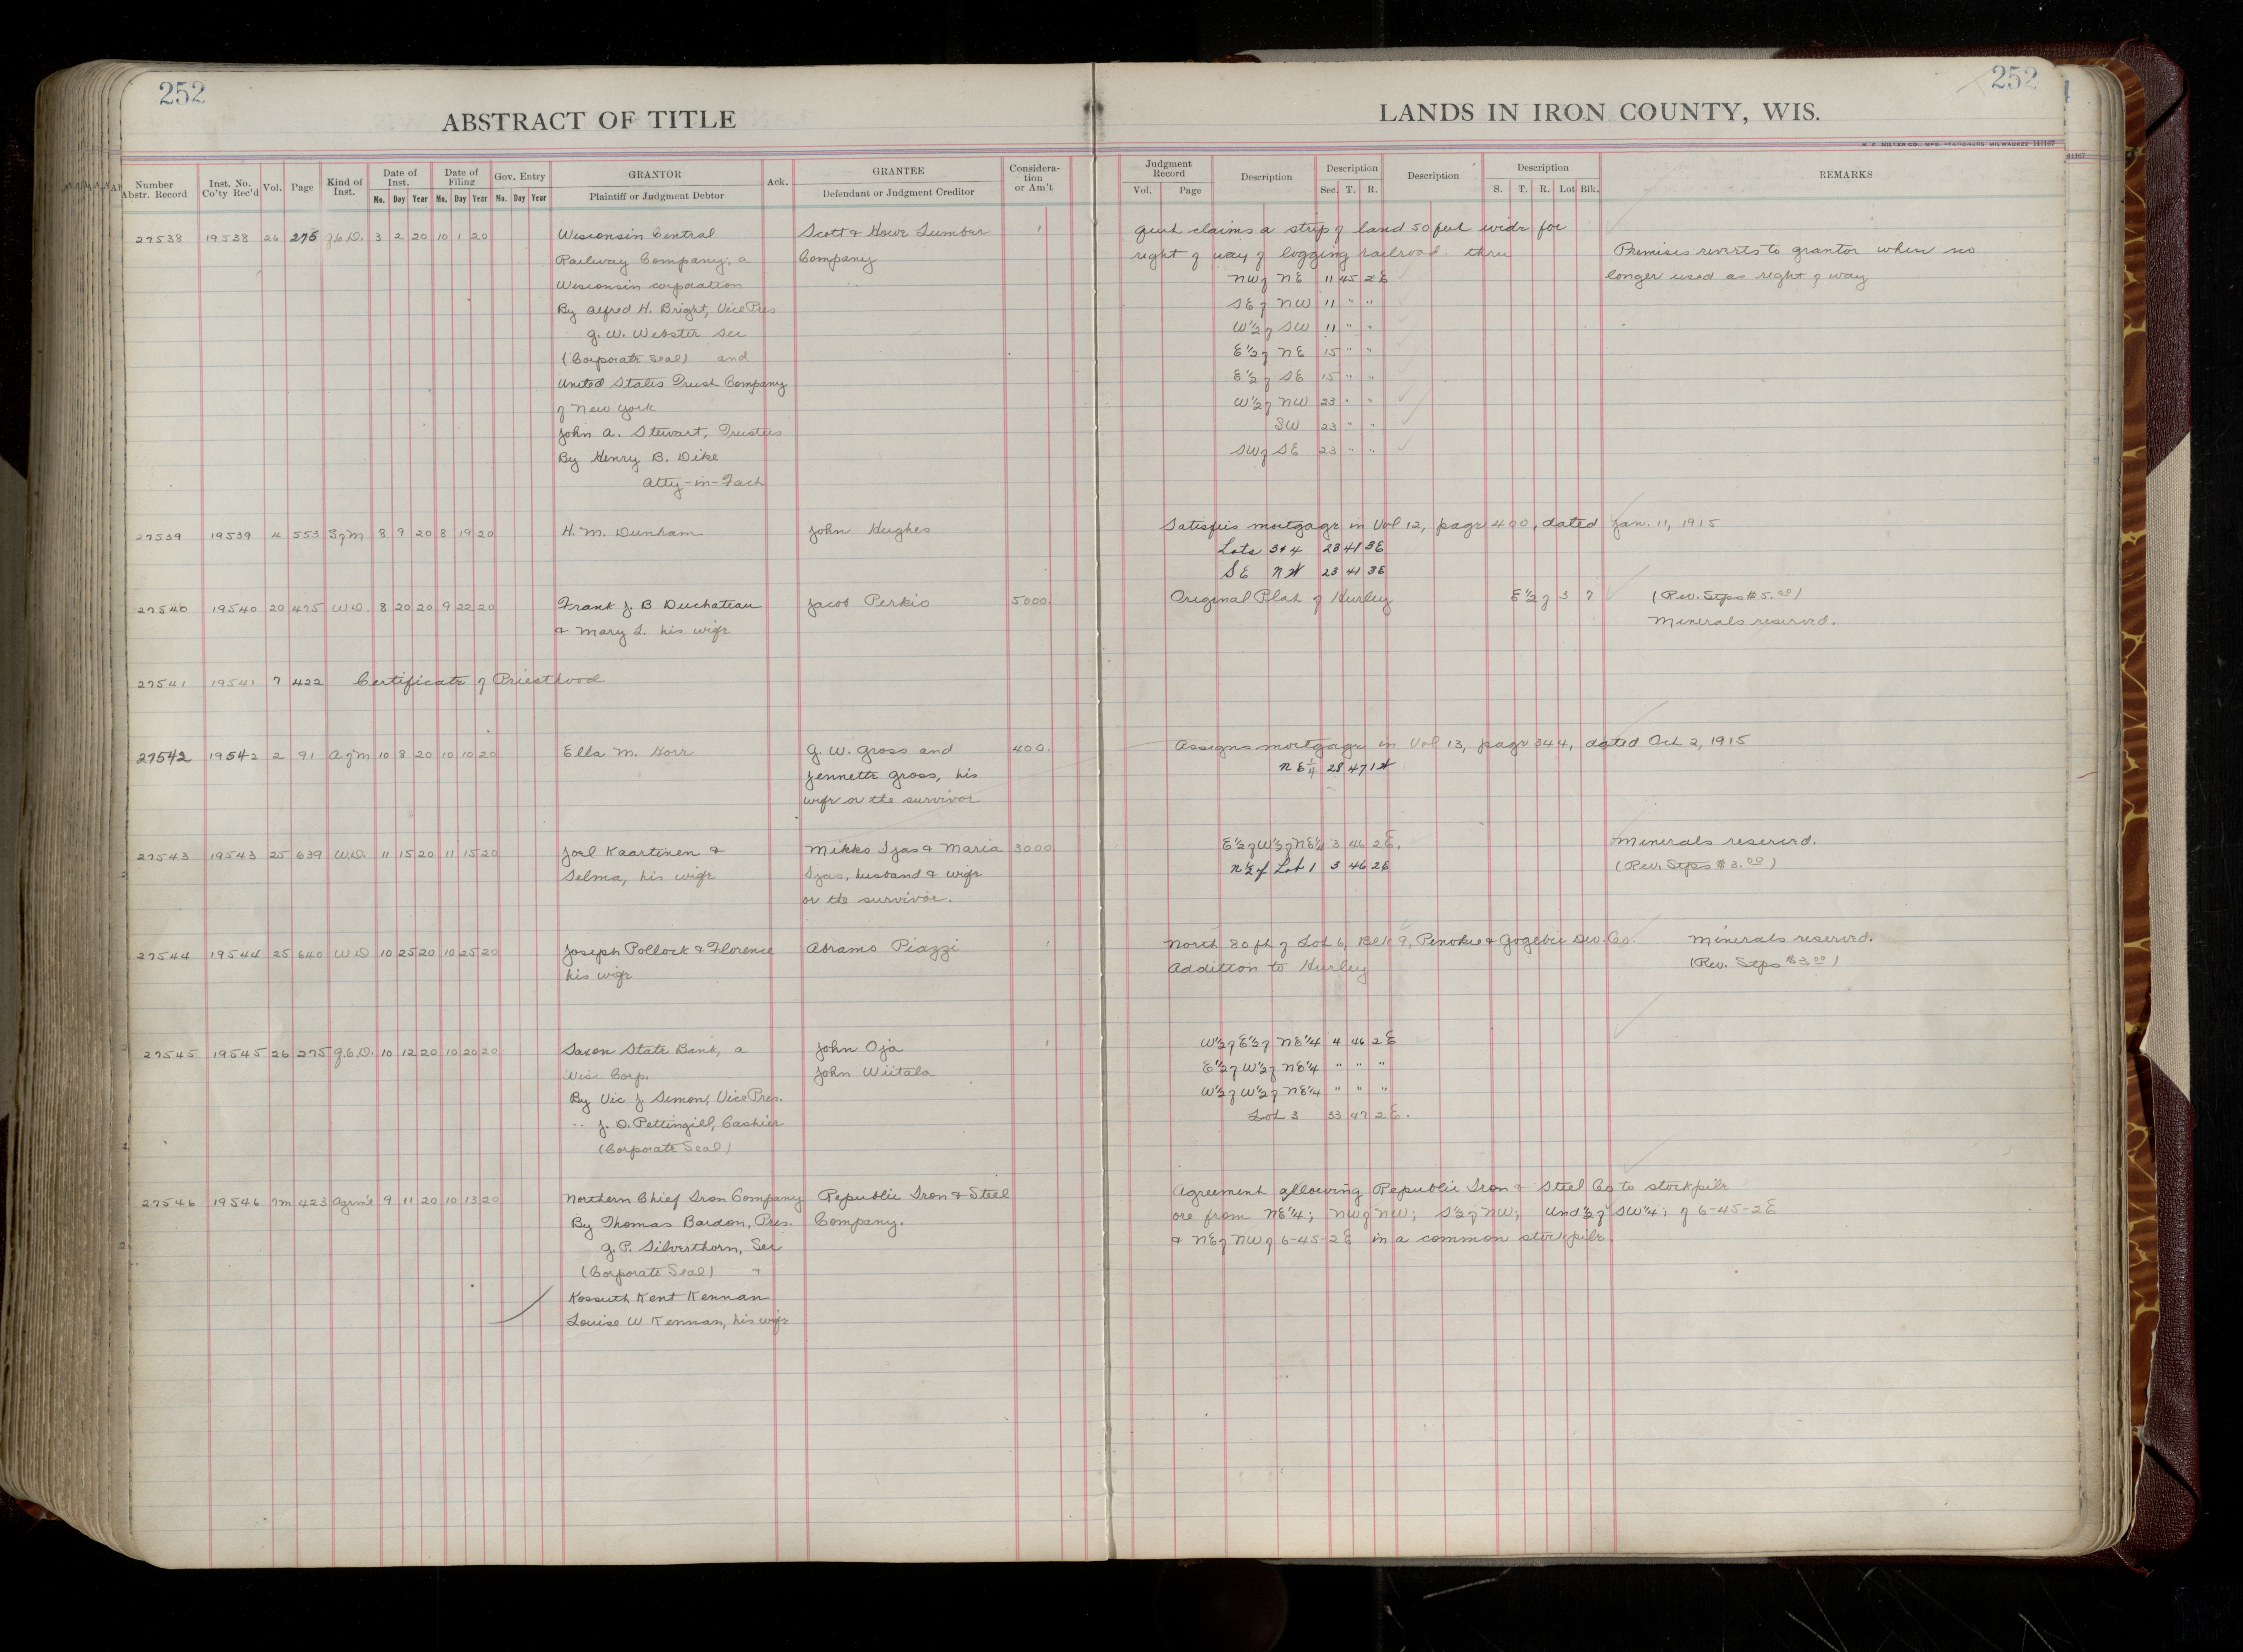 252
252
ABSTRACT OF TITLE
LANDS IN IRON COUNTY, WIS.
H. C. MILLER CO., MFG. STATIONERS, MILWAUKEE 141167
Number Abstr. Record | Inst. No. Co'ty Rec'd | Vol. | Page | Kind of Inst. | Date of Inst. Mo. Day Year | Date of Filing Mo. Day Year | Gov. Entry Mo. Day Year | GRANTOR Plaintiff or Judgment Debtor | Ack. | GRANTEE Defendant or Judgment Creditor | Considera- tion or Am't | Judgment Record Vol. Page | Description | Description Sec. T. R. | Description | Description S. T. R. Lot Blk. | REMARKS
27538 19538 26 275 Q.C.D. 3 2 20 10 1 20 Wisconsin Central Scott & Howe Lumber 1 Quit claims a strip of land 50 feet wide for
Railway Company, a Company right of way of logging railroad thru Premises reverts to grantor when no
Wisconsin corporation NW of NE 11 45 2E longer used as right of way
By Alfred H. Bright, Vice Pres SE of NW 11 " "
G. W. Webster Sec W½ of SW 11 " "
(Corporate Seal) and E½ of NE 15 " "
United States Trust Company E½ of SE 15 " "
of New York W½ of NW 23 " "
John A. Stewart, Trustees SW 23 " "
By Henry B. Dike SW of SE 23 " "
Atty-in-Fact
27539 19539 4 553 S of M 8 9 20 8 19 20 H. M. Dunham John Hughes Satisfies mortgage in Vol 12, page 400, dated Jan. 11, 1915
Lots 3 & 4 23 41 3E
SE NW 23 41 3E
27540 19540 20 475 W.D. 8 20 20 9 22 20 Frank J. B Duchateau Jacob Perkio 5000 Original Plat of Hurley E½ of 3 7 (Rev. Stps $5.00)
& Mary L. his wife Minerals reserved.
27541 19541 7 422 Certificate of Priesthood
27542 19542 2 91 A of M 10 8 20 10 10 20 Ella M. Horr G. W. Gross and 400. Assigns mortgage in Vol 13, page 344, dated Oct 2, 1915
Jennette Gross, his NE¼ 28 47 1W
wife or the survivor
27543 19543 25 639 W.D. 11 15 20 11 15 20 Joel Kaartinen & Mikko Ijas & Maria 3000 E½ of W½ of NE¼ 3 46 2E. Minerals reserved.
Selma, his wife Ijas, husband & wife N½ of Lot 1 3 46 2E (Rev. Stps $3.00)
or the survivor.
27544 19544 25 640 W.D 10 25 20 10 25 20 Joseph Pollock & Florence Abramo Piazzi 1 North 80 ft of Lot 6, Blk 9, Penokee & Gogebic Dev. Co. Minerals reserved.
his wife Addition to Hurley (Rev. Stps $3.00)
27545 19545 26 275 Q.C.D. 10 12 20 10 20 20 Saxon State Bank, a John Oja 1 W½ of E½ of NE¼ 4 46 2E
Wis. Corp. John Wiitala E½ of W½ of NE¼ " " "
By Vic J. Simon, Vice Pres. W½ of W½ of NE¼ " " "
" J. D. Pettingill, Cashier Lot 3 33 47 2E.
(Corporate Seal)
27546 19546 7m 423 Agrm't 9 11 20 10 13 20 Northern Chief Iron Company Republic Iron & Steel Agreement allowing Republic Iron & Steel Co to stockpile
By Thomas Bardon, Pres. Company. ore from NE¼; NW of NW; S½ of NW; Und ½ of SW¼; of 6-45-2E
G. P. Silverthorn, Sec & NE of NW of 6-45-2E in a common stockpile.
(Corporate Seal) &
Kossuth Kent Kennan
Louise W Kennan, his wife